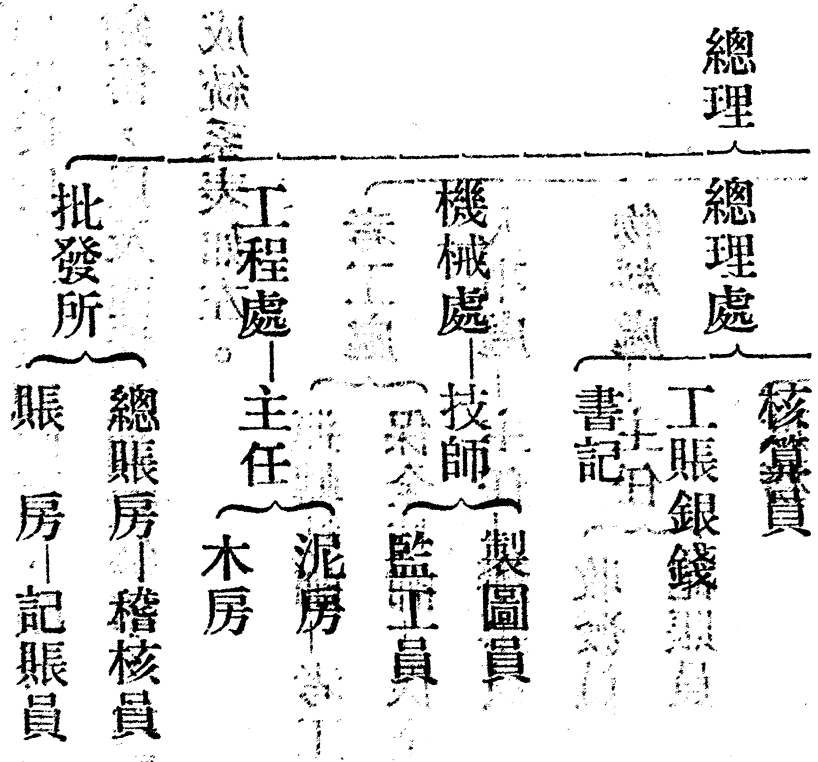 總理
總理處
核算員
工賬銀錢
書記
機械處
技師
製圖員
監工員
工程處
主任
泥房
木房
批發所
總賬房
稽核員
賬房
記賬員